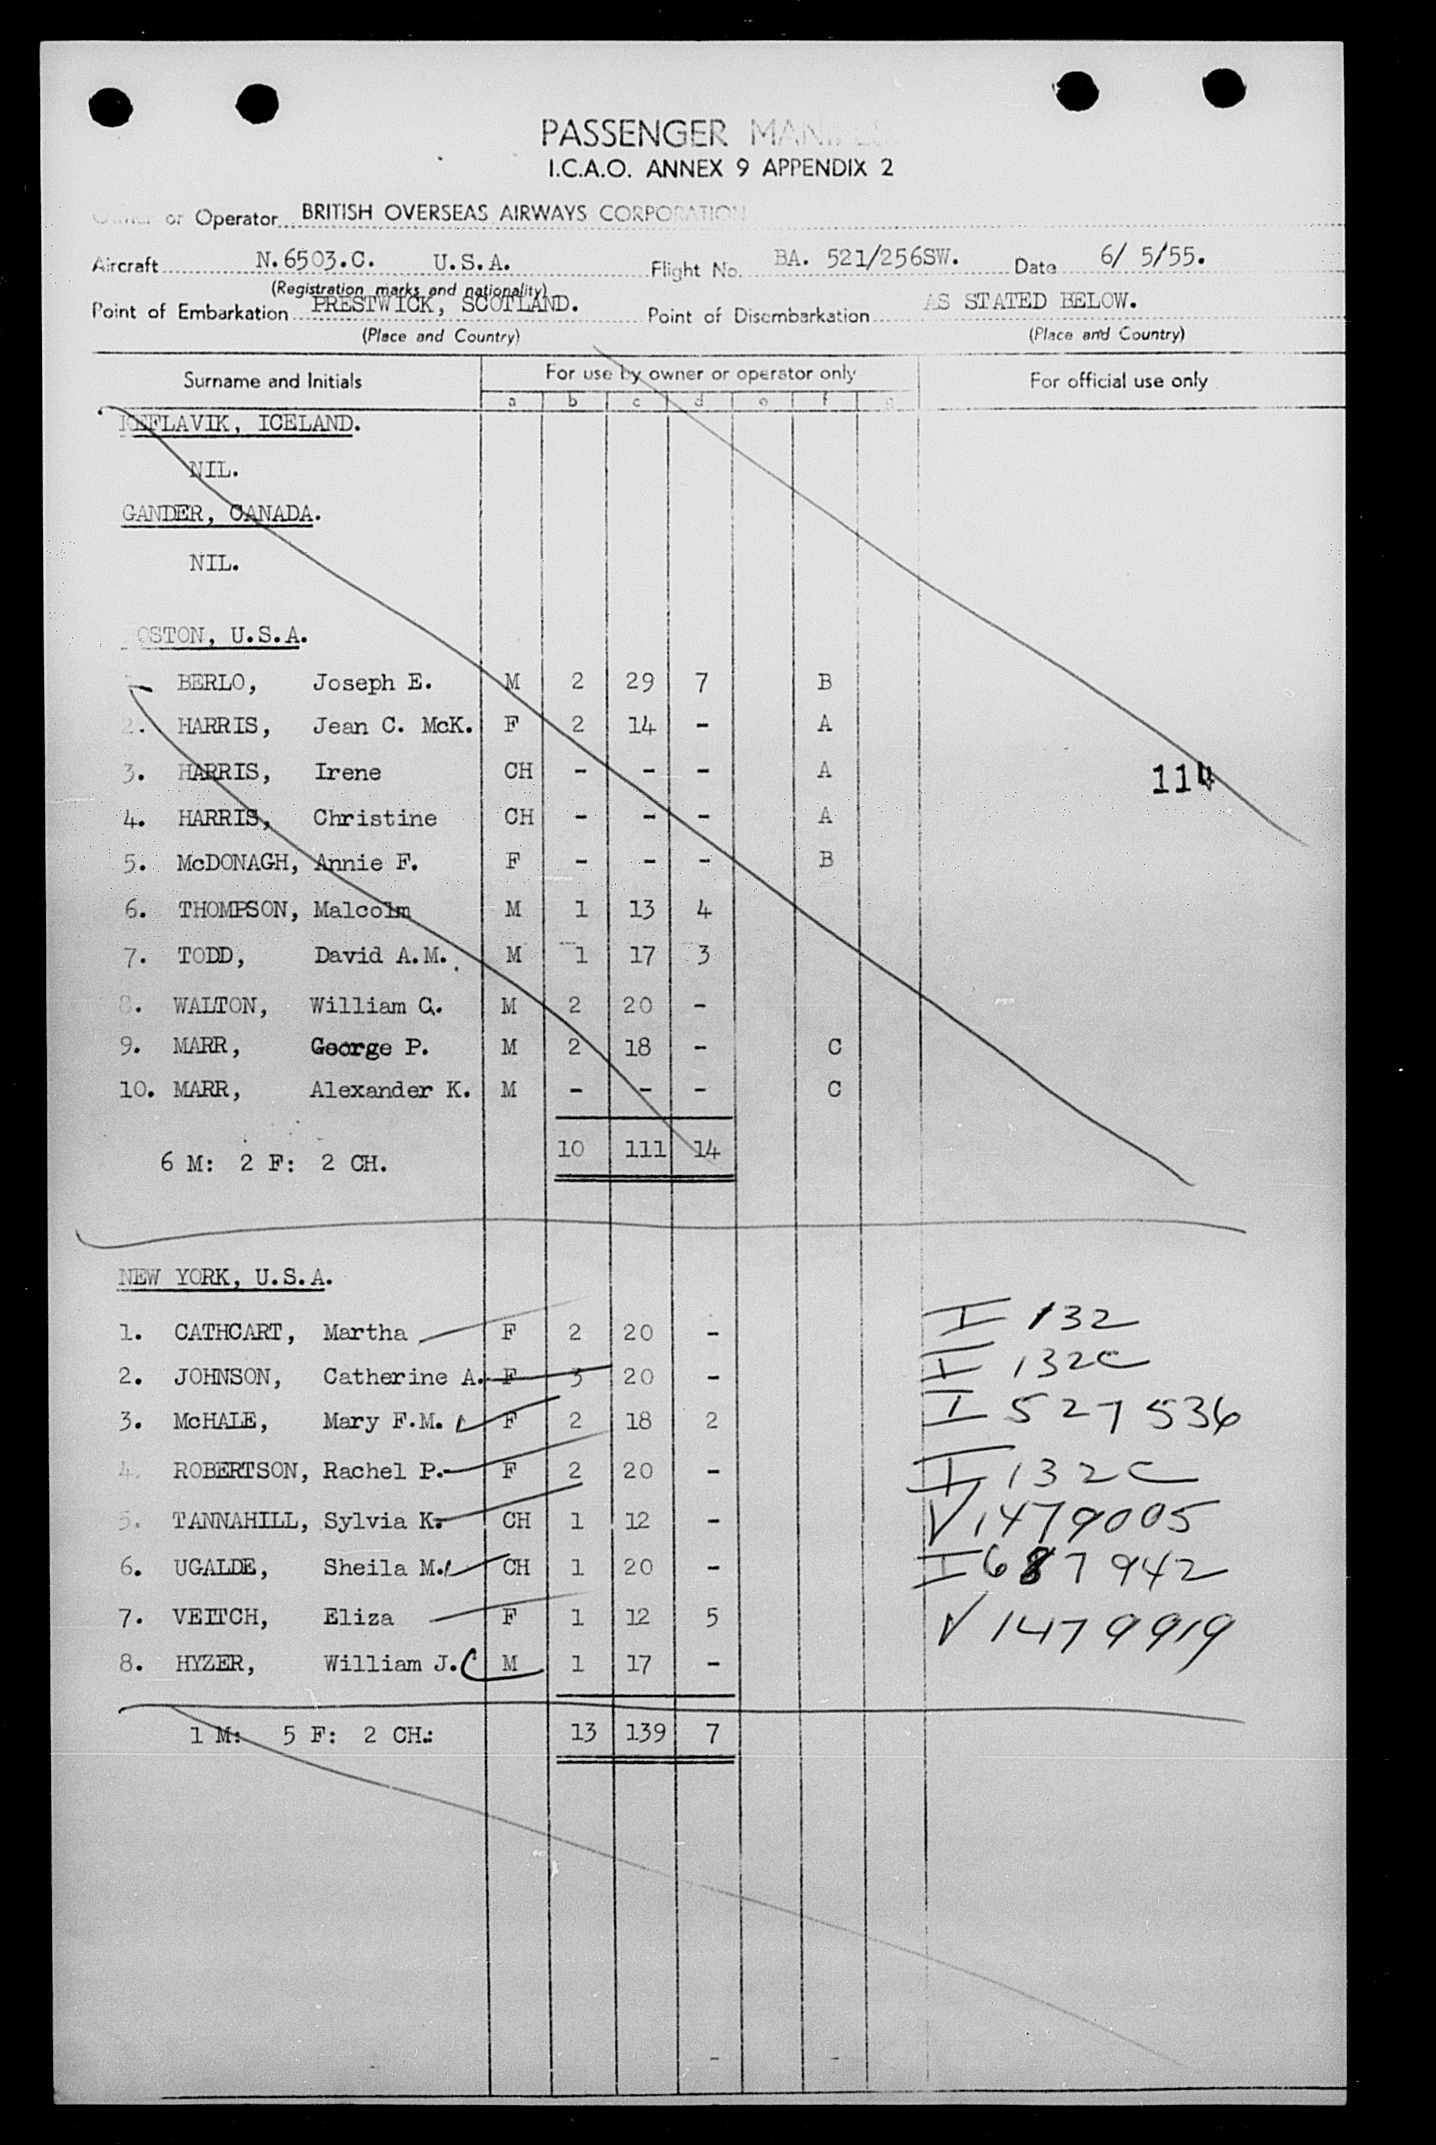 PASSENGER
I.C.A.O. ANNEX 9 APPENDIX 2
Owner or Operator BRITISH OVERSEAS AIRWAYS CORPORATION
Aircraft N.6503.C. U.S.A. Flight No. BA. 521/256SW. Date 6/ 5/55.
(Registration marks and nationality)
Point of Embarkation PRESTWICK, SCOTLAND. Point of Disembarkation AS STATED BELOW.
(Place and Country) (Place and Country)
Surname and Initials For use by owner or operator only For official use only
a b c d e f g
KEFLAVIK, ICELAND.
NIL.
GANDER, CANADA.
NIL.
BOSTON, U.S.A.
BERLO, Joseph E. M 2 29 7 B
2. HARRIS, Jean C. McK. F 2 14 - A
3. HARRIS, Irene CH - - - A
114
4. HARRIS, Christine CH - - - A
5. McDONAGH, Annie F. F - - - B
6. THOMPSON, Malcolm M 1 13 4
7. TODD, David A.M. M 1 17 3
8. WALTON, William G. M 2 20 -
9. MARR, George P. M 2 18 - C
10. MARR, Alexander K. M - - - C
10 111 14
6 M: 2 F: 2 CH.
NEW YORK, U.S.A.
1. CATHCART, Martha F 2 20 - I 132
2. JOHNSON, Catherine A. F 3 20 - I 132C
3. McHALE, Mary F.M. F 2 18 2 I 527536
4. ROBERTSON, Rachel P. F 2 20 - I 132C
5. TANNAHILL, Sylvia K. CH 1 12 - V 1479005
6. UGALDE, Sheila M. CH 1 20 - I 687942
7. VEITCH, Eliza F 1 12 5 V 1479919
8. HYZER, William J. C M 1 17 -
1 M: 5 F: 2 CH.: 13 139 7